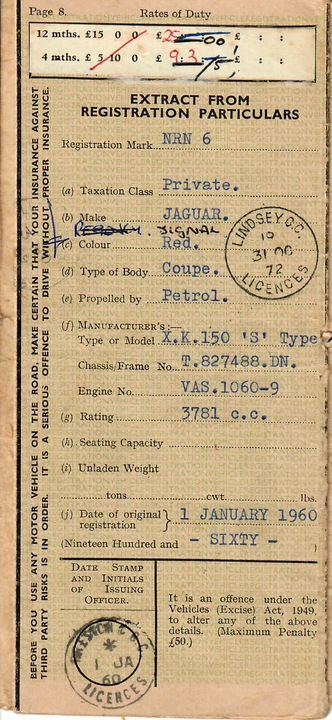 Page 8. Rates of Duty
12 mths. £15 0 0 £25 - 00 £ : :
4 mths. £ 5 10 0 £ 9. 3. /5 £ : :
EXTRACT FROM
REGISTRATION PARTICULARS
Registration Mark NRN 6
(a) Taxation Class Private.
(b) Make JAGUAR.
SIGNAL
(c) Colour Red.
(d) Type of Body Coupe.
(e) Propelled by Petrol.
(f) MANUFACTURER'S:—
Type or Model X.K.150 'S' Type
Chassis/Frame No. T.827488.DN.
Engine No. VAS.1060-9
(g) Rating 3781 c.c.
(h) Seating Capacity
(i) Unladen Weight
tons cwt. lbs.
(j) Date of original registration } 1 JANUARY 1960
(Nineteen Hundred and - SIXTY - )
DATE STAMP
AND INITIALS
OF ISSUING
OFFICER.
It is an offence under the
Vehicles (Excise) Act, 1949,
to alter any of the above
details. (Maximum Penalty
£50.)
LINDSEY C.C.
10
31 OC
72
LICENCES
C.C.
*
1 JA
60
LICENCES
BEFORE YOU USE ANY MOTOR VEHICLE ON THE ROAD, MAKE CERTAIN THAT YOUR INSURANCE AGAINST
THIRD PARTY RISKS IS IN ORDER. IT IS A SERIOUS OFFENCE TO DRIVE WITHOUT PROPER INSURANCE.